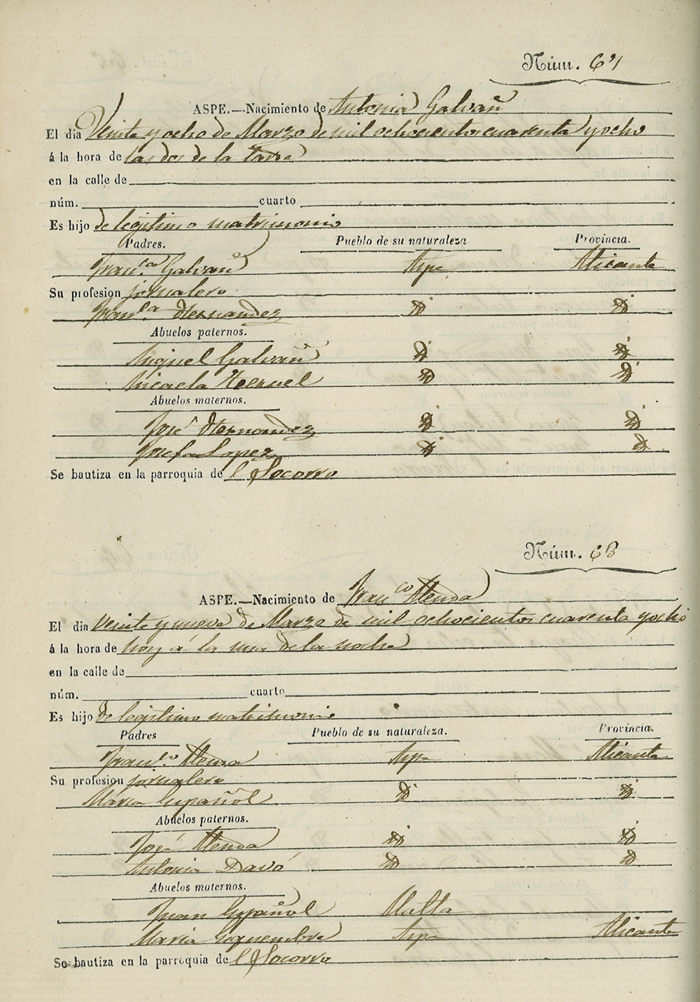 Núm. 67
ASPE.—Nacimiento de Antonia Galvañ
El dia Veinte y ocho de Marzo de mil ochocientos cuarenta y ocho
á la hora de las dos de la tarde
en la calle de
núm. cuarto
Es hijo de legitimo matrimonio
Padres. Pueblo de su naturaleza Provincia.
Galvañ Aspe Alicante
Su profesion jornalero
Fran.ca Hernandez
Abuelos paternos.
Miguel Galvañ
Micaela
Abuelos maternos.
José Hernandez
Josefa Lopez
Se bautiza en la parroquia de el Socorro
Núm. 68
ASPE.—Nacimiento de Fran.co
El dia Veinte y nueve de Marzo de mil ochocientos cuarenta y ocho
á la hora de hoy a la una de la noche
en la calle de
núm. cuarto
Es hijo de legitimo matrimonio
Padres Pueblo de su naturaleza. Provincia.
Fran.co Aspe Alicante
Su profesion jornalero
Maria Español
Abuelos paternos.
José
Antonia Davó
Abuelos maternos.
Juan Español
Maria Aspe Alicante
Se bautiza en la parroquia de el Socorro